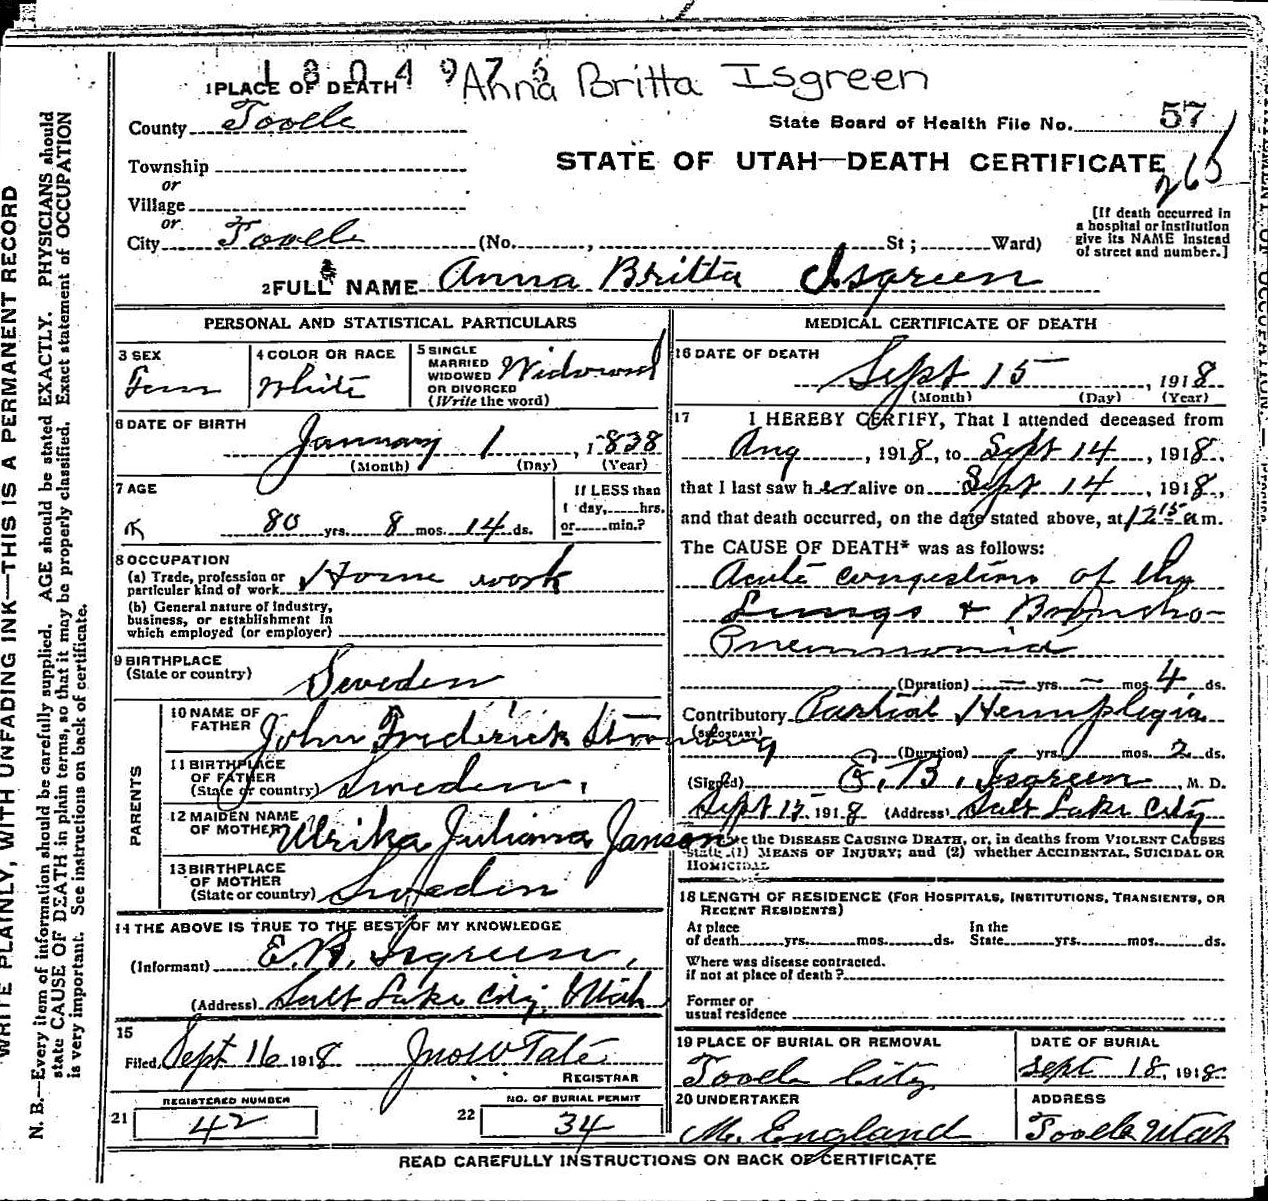 1804976 Anna Britta Isgreen
1 PLACE OF DEATH
County Tooele
State Board of Health File No. 57
Township
or
Village
or
City Tooele (No. , St; Ward)
STATE OF UTAH—DEATH CERTIFICATE
265
[If death occurred in
a hospital or institution
give its NAME instead
of street and number.]
2 FULL NAME Anna Britta Isgreen
PERSONAL AND STATISTICAL PARTICULARS
3 SEX
Fem
4 COLOR OR RACE
White
5 SINGLE
MARRIED
WIDOWED
OR DIVORCED
(Write the word)
Widowed
6 DATE OF BIRTH
January 1, 1838
(Month) (Day) (Year)
7 AGE
80 yrs. 8 mos. 14 ds.
If LESS than
1 day, hrs.
or min.?
8 OCCUPATION
(a) Trade, profession or
particular kind of work Home work
(b) General nature of industry,
business, or establishment in
which employed (or employer)
9 BIRTHPLACE
(State or country)
Sweden
PARENTS
10 NAME OF
FATHER John Frederick Stromberg
11 BIRTHPLACE
OF FATHER
(State or country) Sweden.
12 MAIDEN NAME
OF MOTHER Ulrika Juliana Janson
13 BIRTHPLACE
OF MOTHER
(State or country) Sweden
14 THE ABOVE IS TRUE TO THE BEST OF MY KNOWLEDGE
(Informant) E. B. Isgreen,
(Address) Salt Lake City, Utah
15
Filed Sept 16 1918 Jno W Tate
REGISTRAR
REGISTERED NUMBER
21 42
NO. OF BURIAL PERMIT
22 34
MEDICAL CERTIFICATE OF DEATH
16 DATE OF DEATH
Sept 15, 1918
(Month) (Day) (Year)
17 I HEREBY CERTIFY, That I attended deceased from
Aug, 1918, to Sept 14, 1918,
that I last saw her alive on Sept 14, 1918,
and that death occurred, on the date stated above, at 12 15 a m.
The CAUSE OF DEATH* was as follows:
Acute congestion of the
Lungs + Broncho-
Pneumonia
(Duration) — yrs. — mos. 4 ds.
Contributory Partial Hemiplegia
(SECONDARY)
(Duration) yrs. mos. 2 ds.
(Signed) E. B. Isgreen, M. D.
Sept 15 1918 (Address) Salt Lake City
the DISEASE CAUSING DEATH, or, in deaths from VIOLENT CAUSES
state (1) MEANS OF INJURY; and (2) whether ACCIDENTAL, SUICIDAL OR
HOMICIDAL
18 LENGTH OF RESIDENCE (FOR HOSPITALS, INSTITUTIONS, TRANSIENTS, OR
RECENT RESIDENTS)
At place
of death yrs. mos. ds.
In the
State yrs. mos. ds.
Where was disease contracted.
if not at place of death?
Former or
usual residence
19 PLACE OF BURIAL OR REMOVAL
Tooele City
DATE OF BURIAL
Sept 18, 1918
20 UNDERTAKER
M. England
ADDRESS
Tooele Utah
READ CAREFULLY INSTRUCTIONS ON BACK OF CERTIFICATE
WRITE PLAINLY, WITH UNFADING INK—THIS IS A PERMANENT RECORD
N. B.—Every item of information should be carefully supplied. AGE should be stated EXACTLY. PHYSICIANS should
state CAUSE OF DEATH in plain terms, so that it may be properly classified. Exact statement of OCCUPATION
is very important. See instructions on back of certificate.